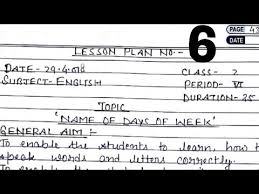 PAGE 43
DATE
LESSON PLAN NO:- 6
DATE-29.4.018
CLASS- 2
SUBJECT-ENGLISH
PERIOD- VI
DURATION-35
TOPIC
'NAME OF DAYS OF WEEK'
GENERAL AIM :-
To enable the students to learn, how t
speak words and letters correctly.
To enable the